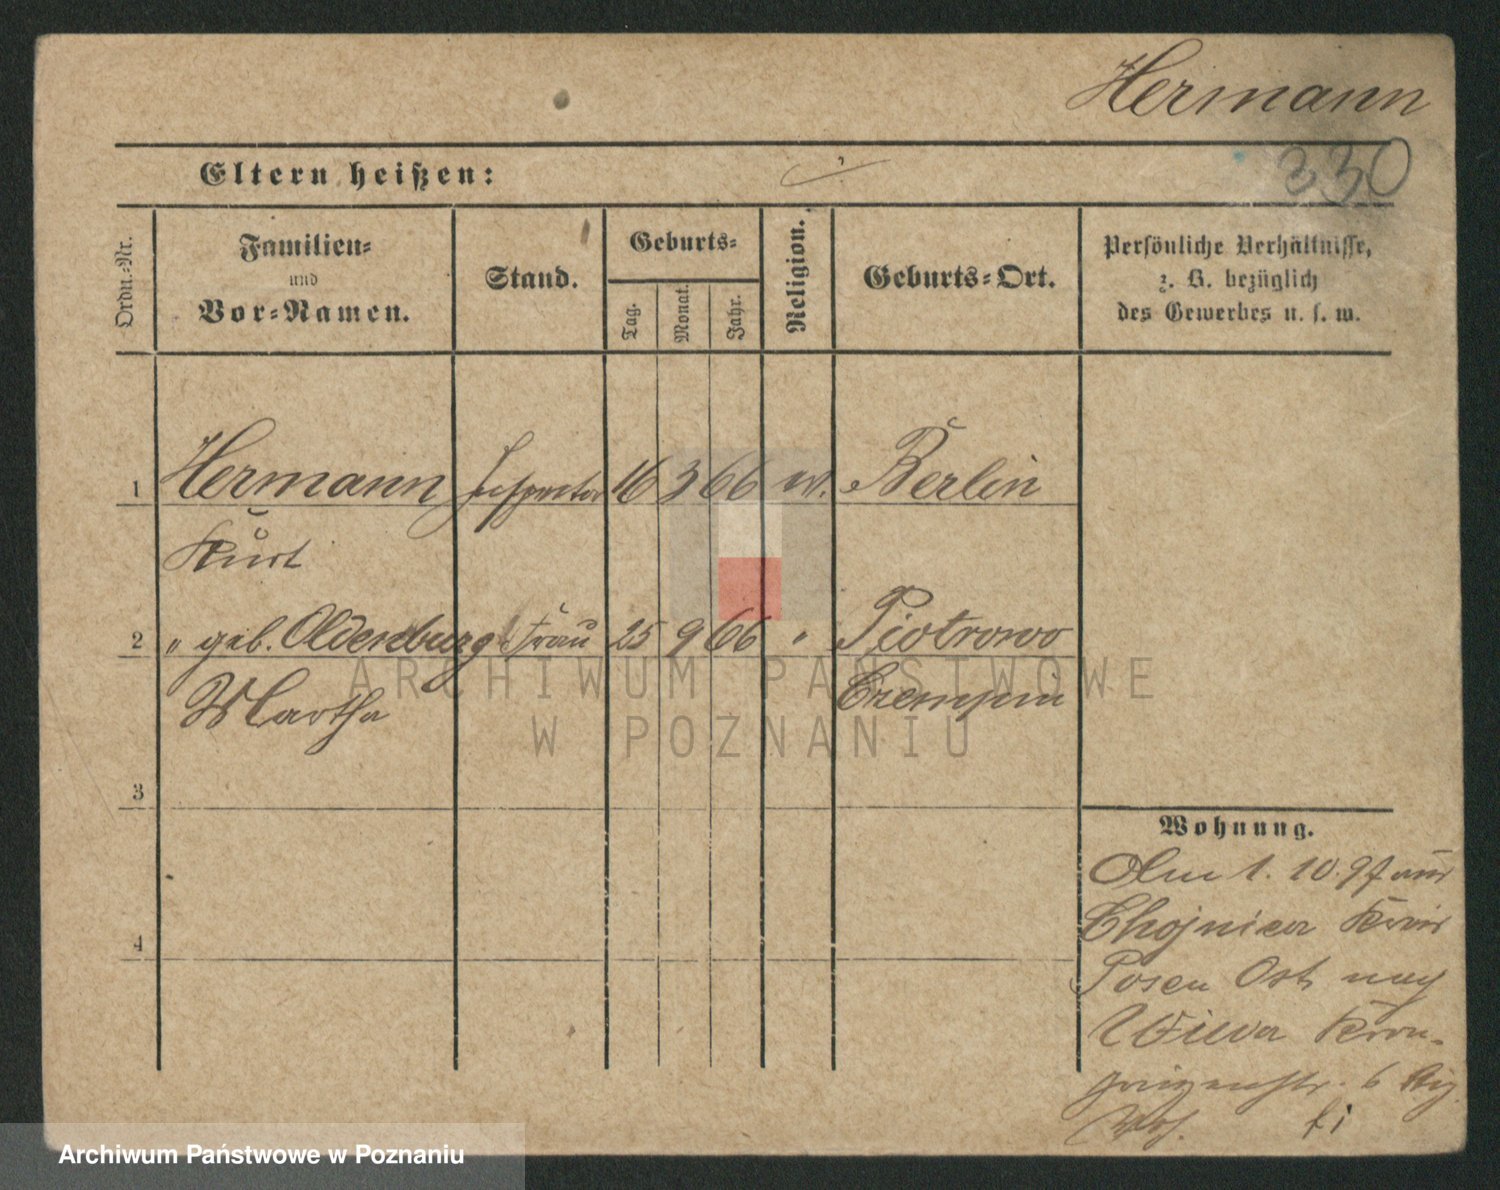 Hermann
330
Eltern heißen:
Ordn.-Nr.
Familien-
und
Vor-Namen.
Stand.
Geburts-
Tag.
Monat.
Jahr.
Religion.
Geburts-Ort.
Persönliche Verhältnisse,
z. B. bezüglich
des Gewerbes u. s. w.
1 Hermann Inspector 16 3 66 ev. Berlin
Kurt
2 " geb. Oldenburg Frau 25 9 66 " Piotrowo
Martha Czempin
3
4
Wohnung.
Am 1. 10. 97 aus
Chojnica Kreis
Posen Ost nach
Wilda Kron-
prinzenstr. 6
ARCHIWUM PAŃSTWOWE
W POZNANIU
Archiwum Państwowe w Poznaniu